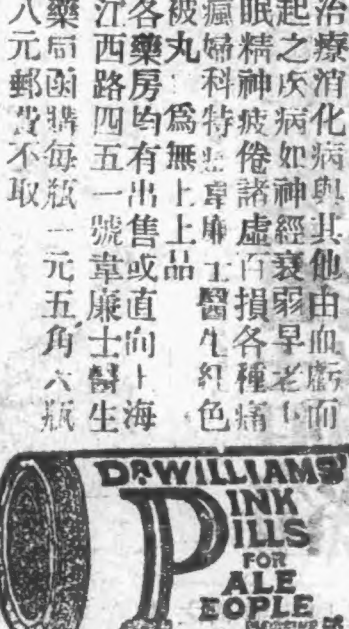 治療消化病與其他由血虧而
起之疾病如神經衰弱早老不
眠精神疲倦諸虛百損各種痛
瘋婦科特症韋廉士醫生紅色
被丸 爲無上上品
各藥房均有出售或直向上海
江西路四五一號韋廉士醫生
藥局函購每瓶一元五角六瓶
八元郵費不取
DR WILLIAMS'
PINK
PILLS
FOR
PALE
PEOPLE